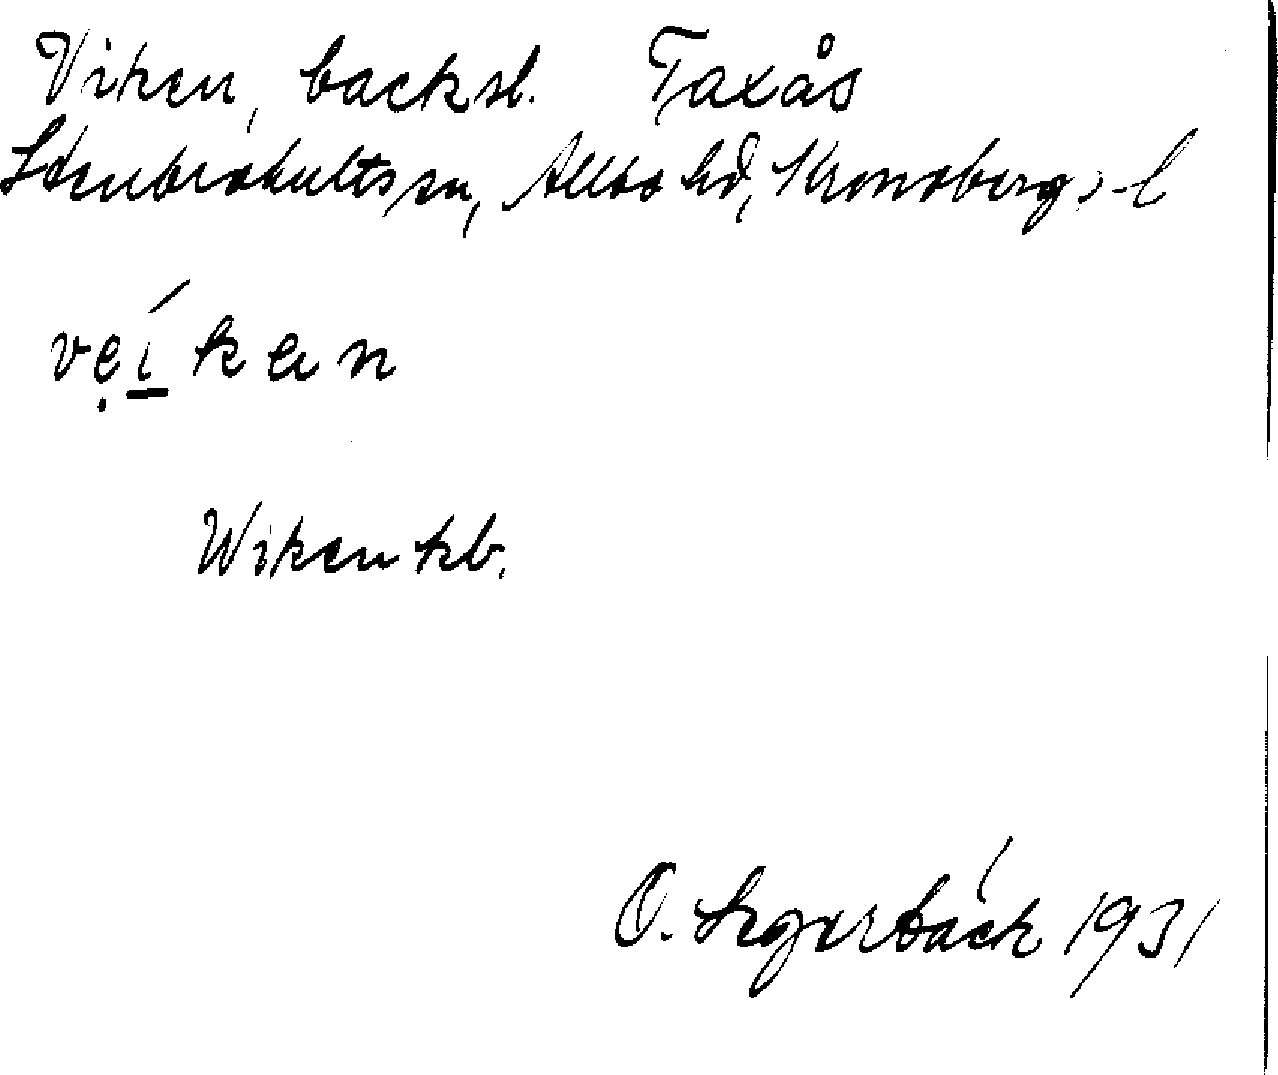 Viken, backsl. Taxås
Stenbrohults sn, Allbo hd, Kronobergs l
vẹíkan
Wiken kb.
O. Segerbäck 1931